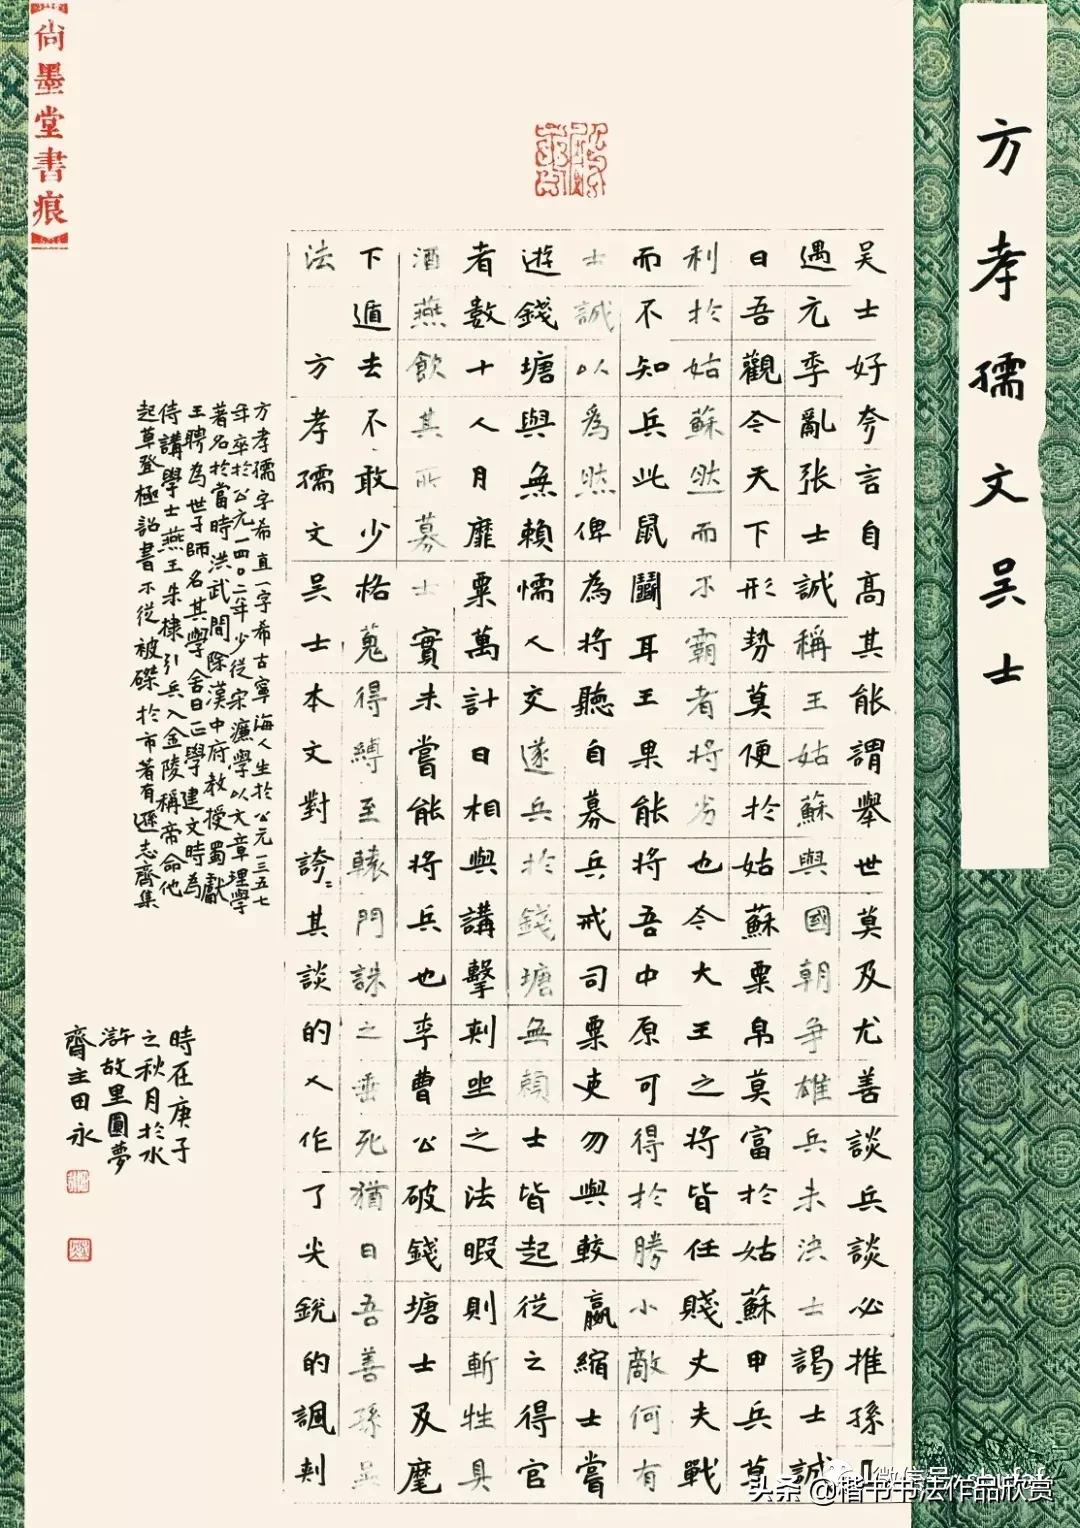 方孝孺文吴士
吴士好夸言自高其能謂舉世莫及尤善談兵談必推孫
遇元季亂张士誠稱王姑蘇與國朝争雄兵未决士謁士誠
曰吾觀今天下形势莫便於姑蘇粟帛莫富於姑蘇甲兵莫
利於姑蘇然而不霸者将劣也今大王之将皆任賤丈夫戰
而不知兵此鼠鬭耳王果能将吾中原可得於勝小敵何有
士誠以為然俾為将聽自募兵戒司粟吏勿與較赢縮士嘗
遊錢塘與無賴懦人交遂兵於錢塘無賴士皆起從之得官
者數十人月靡粟萬計日相與講擊刺坐之法暇則斬牲具
酒燕飲其所募士實未嘗能将兵也李曹公破錢塘士及麾
下遁去不敢少格蒐得縛至轅門誅之垂死猶曰吾善孫吴
法 方孝孺文吴士本文對誇〻其談的人作了尖銳的諷刺
方孝孺字希直一字希古寧海人生於公元一三五七
年卒於公元一四〇二年少從宋濂學以文章理學
著名於當時洪武間除漢中府教授蜀獻
王聘為世子師名其學舍曰正學建文時為
侍講學士燕王朱棣引兵入金陵稱帝命他
起草登極詔書不從被磔於市著有遜志齊集
時在庚子
之秋月於水
滸故里圓夢
齊主田永
【尚墨堂書痕】
头条 @楷书书法作品欣赏